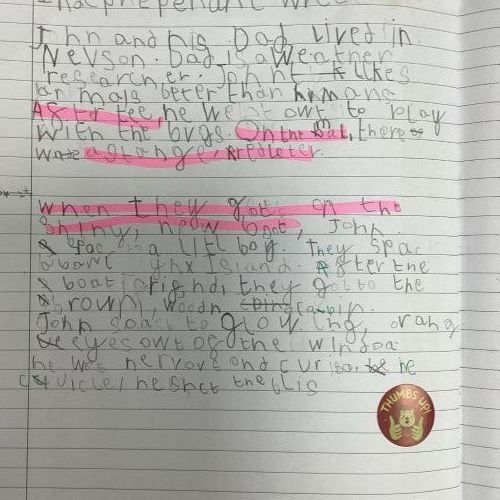 John and his Dad lived in
Nevson. Dad is a Weather
researcher. John likes
animals beter than humans
After tee, he went owt to play
with the bugs. On the mat, there
was a stange, kredleter.
when they got on the
shiny, new boat, John
a littl boy. They spac
abowt Island. After the
boat friend, they got to the
brown, woodn cabin.
John spoet to glowing, orang
eyes owt of the window
he was nervors and curiso. he
he the
THUMBS UP!